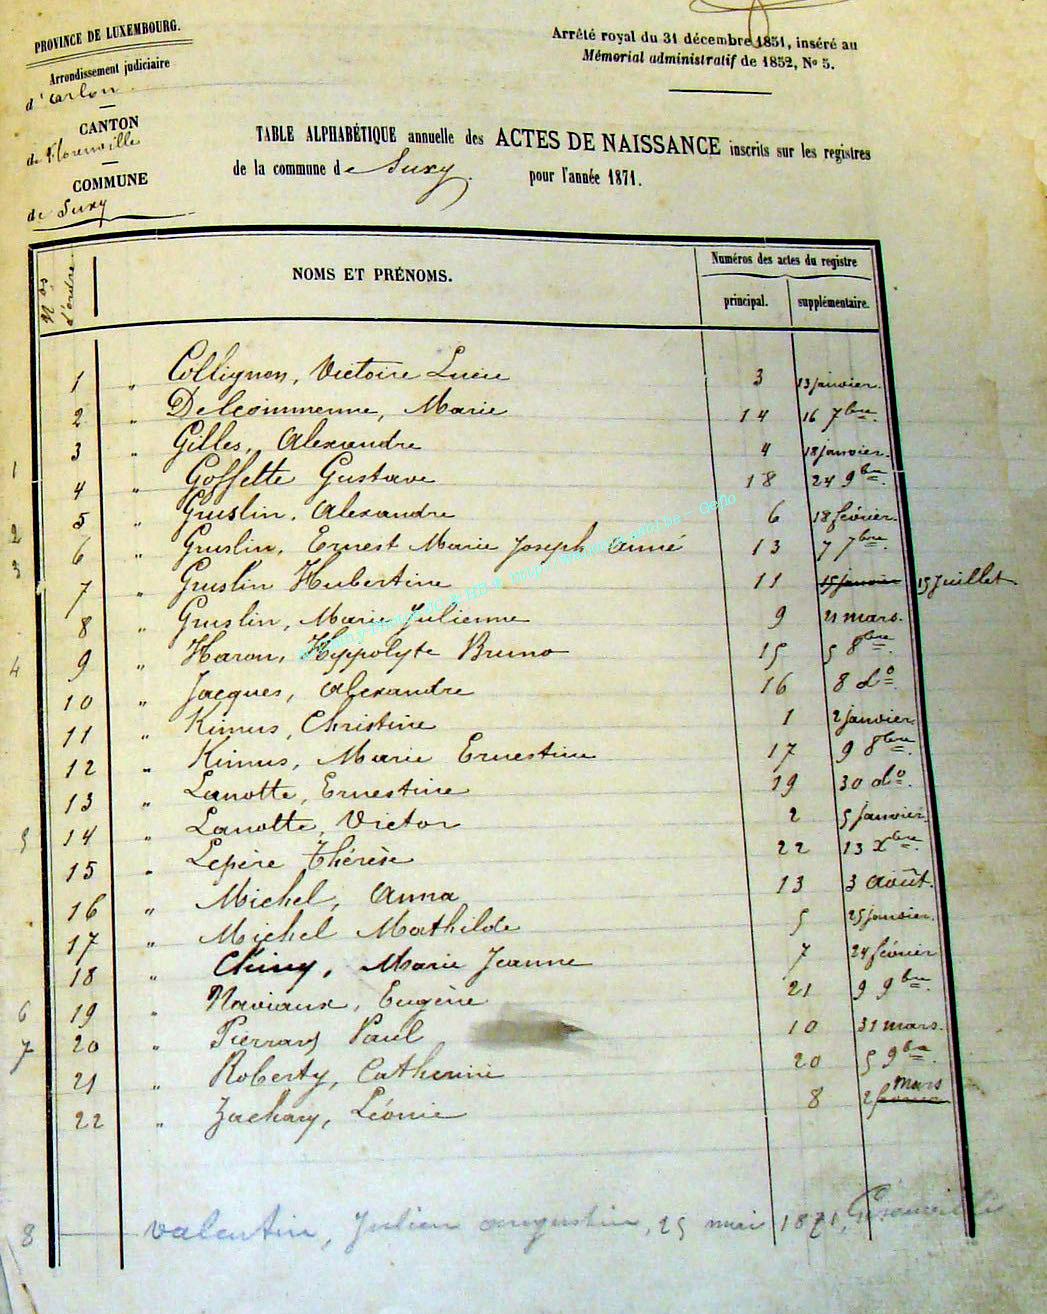 PROVINCE DE LUXEMBOURG.
Arrondissement judiciaire
d'Arlon
CANTON
de Florenville
COMMUNE
de Suxy
Arrêté royal du 31 décembre 1851, inséré au
Mémorial administratif de 1852, No 5.
TABLE ALPHABÉTIQUE annuelle des ACTES DE NAISSANCE inscrits sur les registres
de la commune de Suxy. pour l'année 1871.
Nos d'ordre
NOMS ET PRÉNOMS.
Numéros des actes du registre
principal. supplémentaire.
1 " Collignon, Victoire Lucie 3 13 janvier.
2 " Delcommenne, Marie 14 16 7bre.
3 " Gilles, Alexandre 4 18 janvier.
1 4 " Goffette Gustave 18 24 9bre.
5 " Gruslin, Alexandre 6 18 février.
2 6 " Gruslin, Ernest Marie Joseph Aimé 13 7 7bre.
3 7 " Gruslin Hubertine 11 15 janvier 15 Juillet
8 " Gruslin, Marie Julienne 9 21 mars.
4 9 " Haron, Hyppolyte Bruno 15 5 8bre.
10 " Jacques, Alexandre 16 8 do.
11 " Kimus, Christine 1 2 janvier
12 " Kimus, Marie Ernestine 17 9 8bre.
13 " Lanotte, Ernestine 19 30 do.
5 14 " Lanotte, Victor 2 5 janvier.
15 " Lepère Thérèse 22 13 Xbre.
16 " Michel, Anna 13 3 août.
17 " Michel Mathilde 5 25 janvier.
18 " Chiny, Marie Jeanne 7 24 février
6 19 " Naviaux, Eugène 21 9 9bre.
7 20 " Pierrard Paul 10 31 mars.
21 " Roberty, Catherine 20 5 9bre.
22 " Zachary, Léonie 8 2 février mars
8 Valentin, Julien Augustin, 25 mai 1871,